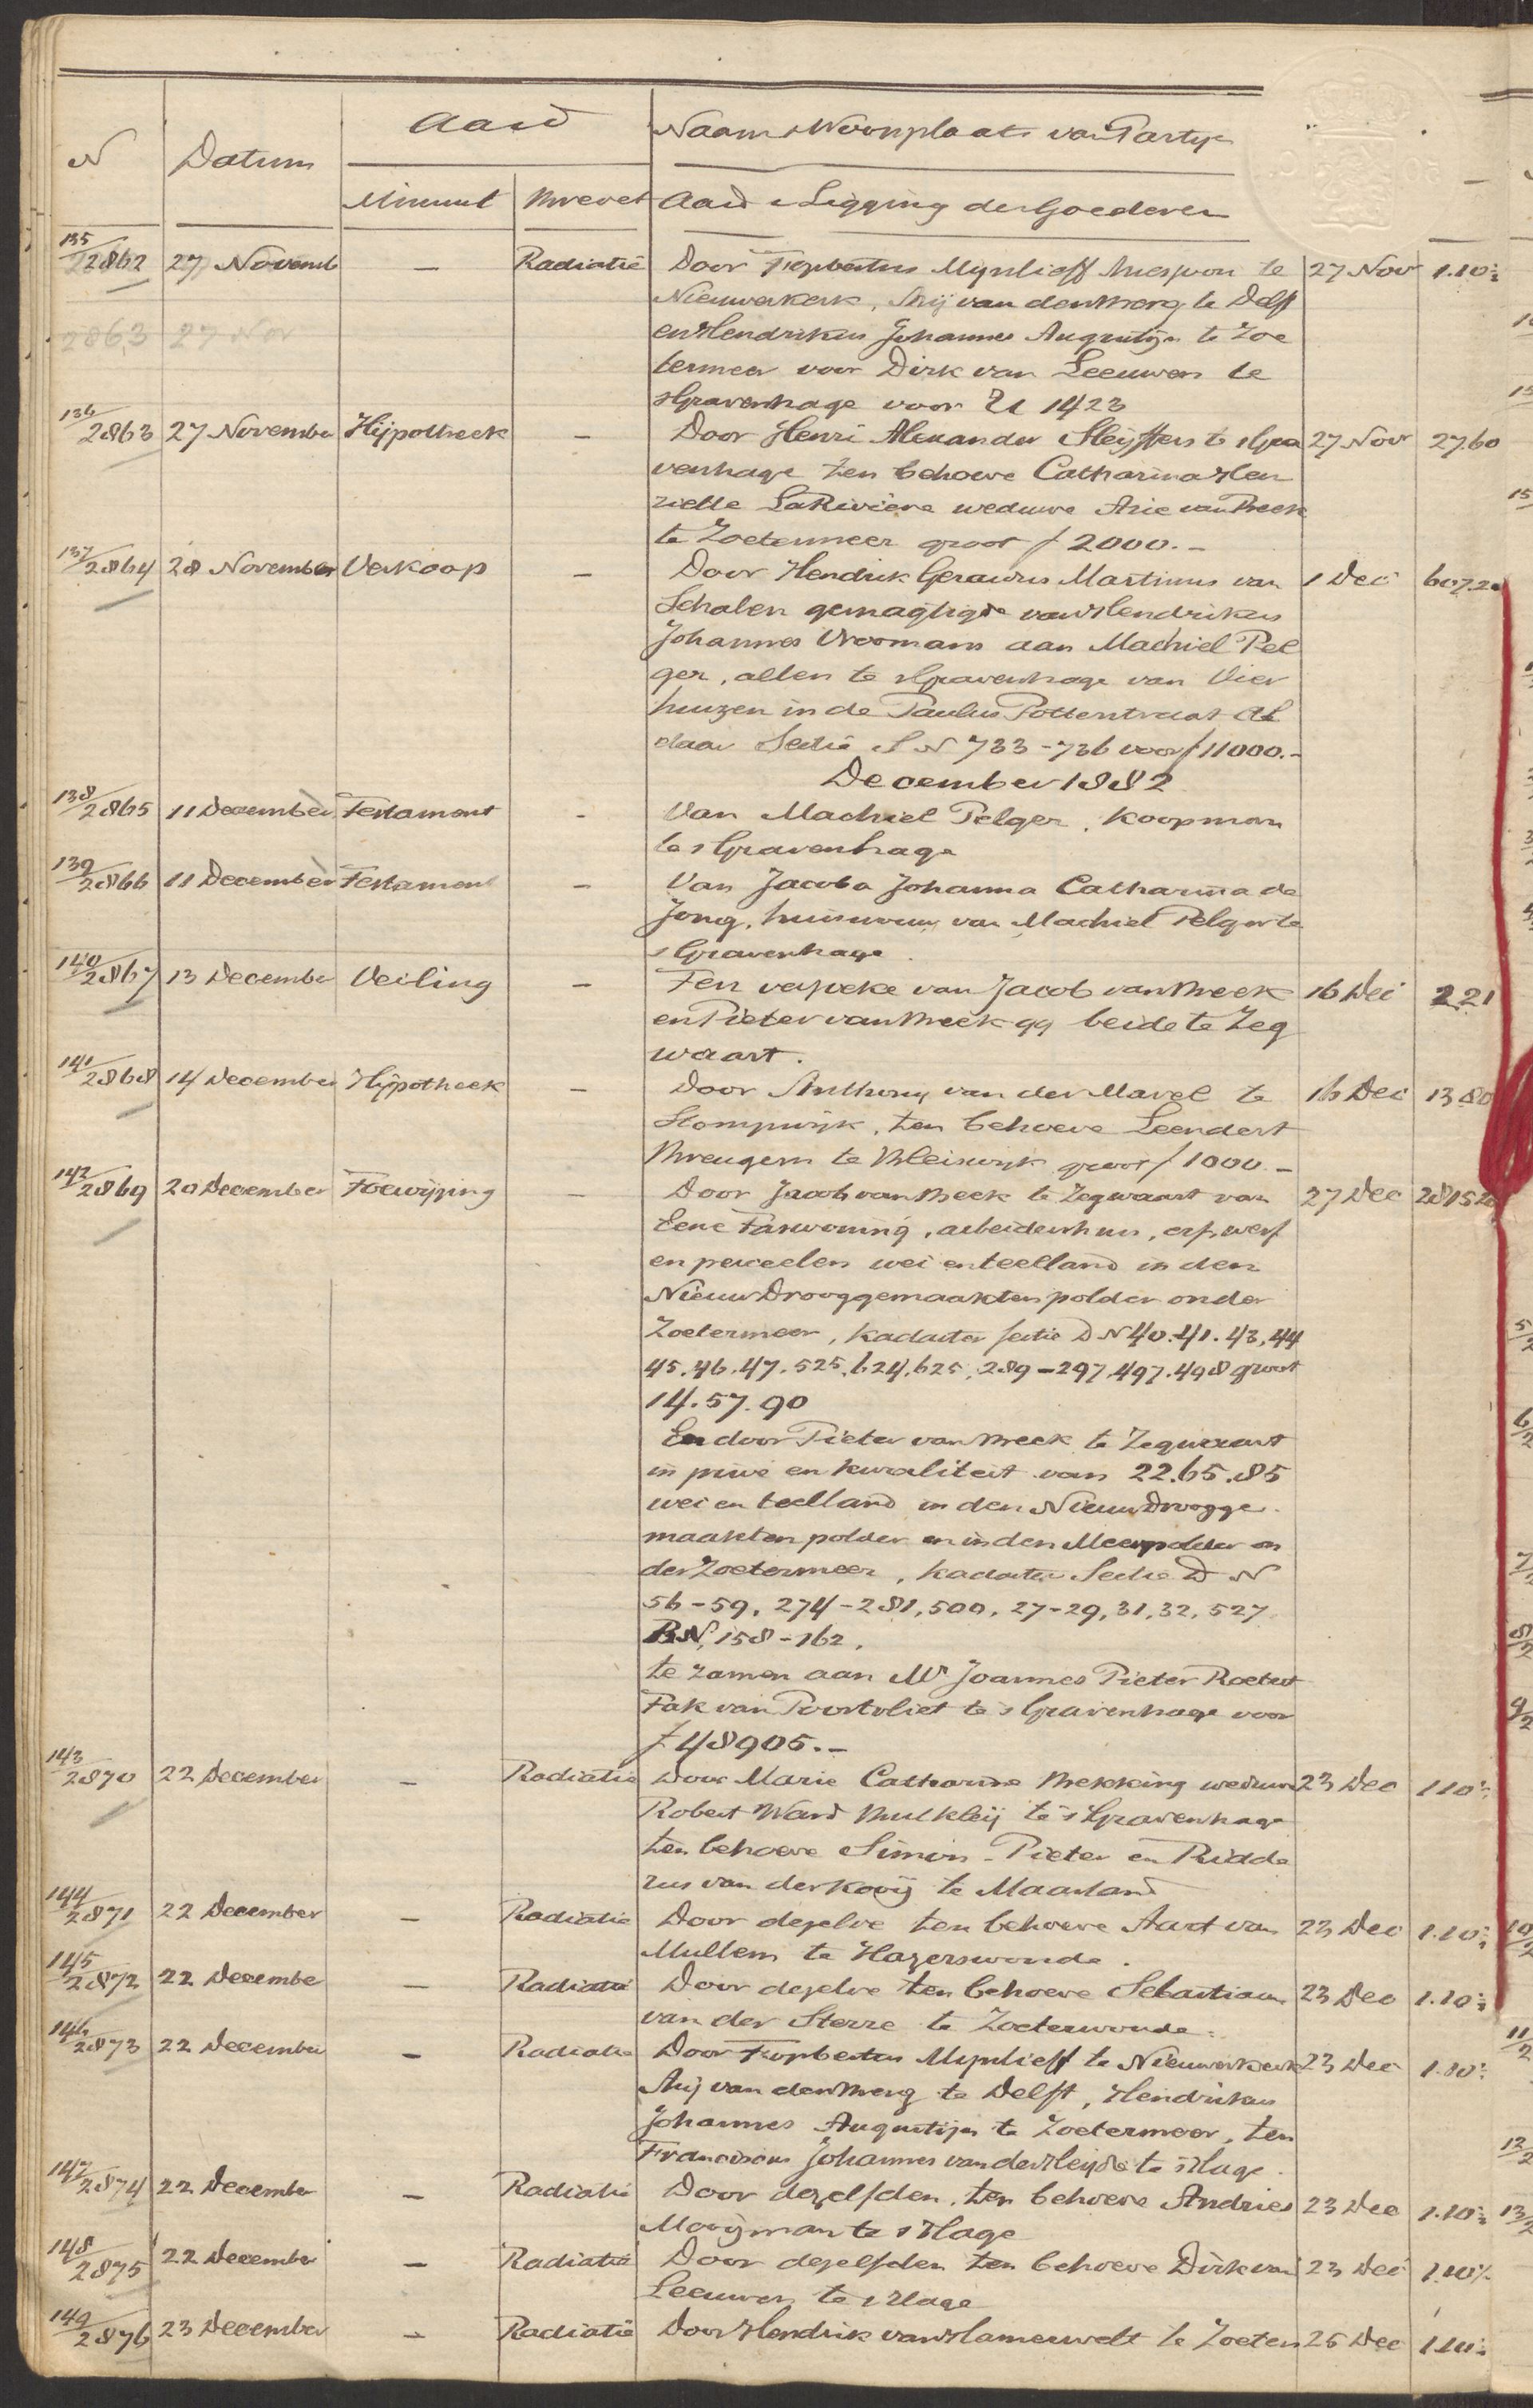 Aard
Naam & Woonplaats van Partye
N Datum
Minuut Brevet Aard & Ligging der Goederen
135/2862 27 Novemb — Radiatie Door Mynlieff te 27 Nov 1.10½
Nieuwerkerk, Arij van den Berg te Delft
en Hendrikus Johannes Augustijn te Zoe
2863 27 Nov
termeer voor Dirk van Leeuwen te
sGravenhage voor 1423
136/2863 27 November Hypotheek — Door Henri Alexander te sGra 27 Nov 27.60
venhage ten behoeve Catharina Hen
riette LaRivière weduwe Arie van Beek
te Zoetermeer groot ƒ 2000.–
137/2864 28 November Verkoop — Door Hendrik Gerardus Martinus van 1 Dec 607.20
Schalen gemagtigde van Hendrikus
Johannes Vroomans aan Machiel Pel
ger, allen te sGravenhage van Vier
huizen in de Paulus Potterstraat al
daar Sectie S N 733-736 voor ƒ 11000.–
December 1882
138/2865 11 December Testament - Van Machiel Pelger, Koopman
te sGravenhage
139/2866 11 December Testament — Van Jacoba Johanna Catharina de
Jong, huisvrouw van Machiel Pelger te
sGravenhage.
140/2867 13 December Veiling — Ten verzoeke van Jacob van Beek 16 Dec 2 21
en Pieter van Beek qq beide te Zeg
waart.
141/2868 14 December Hypotheek — Door Anthony van der Marel te 16 Dec 13 80
Stompwijk, ten behoeve Leendert
Breugem te Bleiswijk groot ƒ 1000.–
142/2869 20 December Toewijzing — Door Jacob van Beek te Zegwaart van 27 Dec 2815.20
Eene Bouwwoning, arbeidershuis, erf, werf
en perceelen wei en teelland in den
Nieuw Drooggemaakten polder onder
Zoetermeer, kadaster sectie D N 40.41.43,44
45.46.47.525.624.625, 289-297.497.498 groot
14.57.90
En door Pieter van Beek te Zegwaart
in privé en kwaliteit van 22.65.85
wei en teelland in den Nieuw Droogge
maakten polder en in den Meerpolder on
der Zoetermeer, kadaster Sectie D N
56-59, 274-281, 500, 27-29, 31, 32, 527
B N, 158-162,
te zamen aan Mr Joannes Pieter Roetert
Tak van Poortvliet te sGravenhage voor
ƒ 48905.–
143/2870 22 December — Radiatie Door Marie Catharina Bekking weduwe 23 Dec 1 10½
Robert Ward Bulkleij te sGravenhage
ten behoeve Simon - Pieter en Ridde
rus van der Kooij te Maasland
144/2871 22 December — Radiatie Door dezelve ten behoeve Aart van 23 Dec 1.10½
Mullem te Hazerswoude.
145/2872 22 Decembe — Radiatie Door dezelve ten behoeve Sebastiaan 23 Dec 1.10½
van der Sterre te Zoeterwoude.
146/2873 22 December — Radiatie Door Mynlieff te Nieuwerkerk 23 Dec 1.10½
Arij van den Berg te Delft, Hendrikus
Johannes Augustijn te Zoetermeer, ten
Franciscus Johannes van der Heijde te sHage.
147/2874 22 December — Radiatie Door dezelfden, ten behoeve Andries 23 Dec 1.10½
Mooijman te sHage
148/2875 22 December — Radiatie Door dezelfden ten behoeve Dirk van 23 Dec 1.10½
Leeuwen te sHage
149/2876 23 December — Radiatie Door Hendrik van Hamerwelt te Zoeter 26 Dec 1.10½